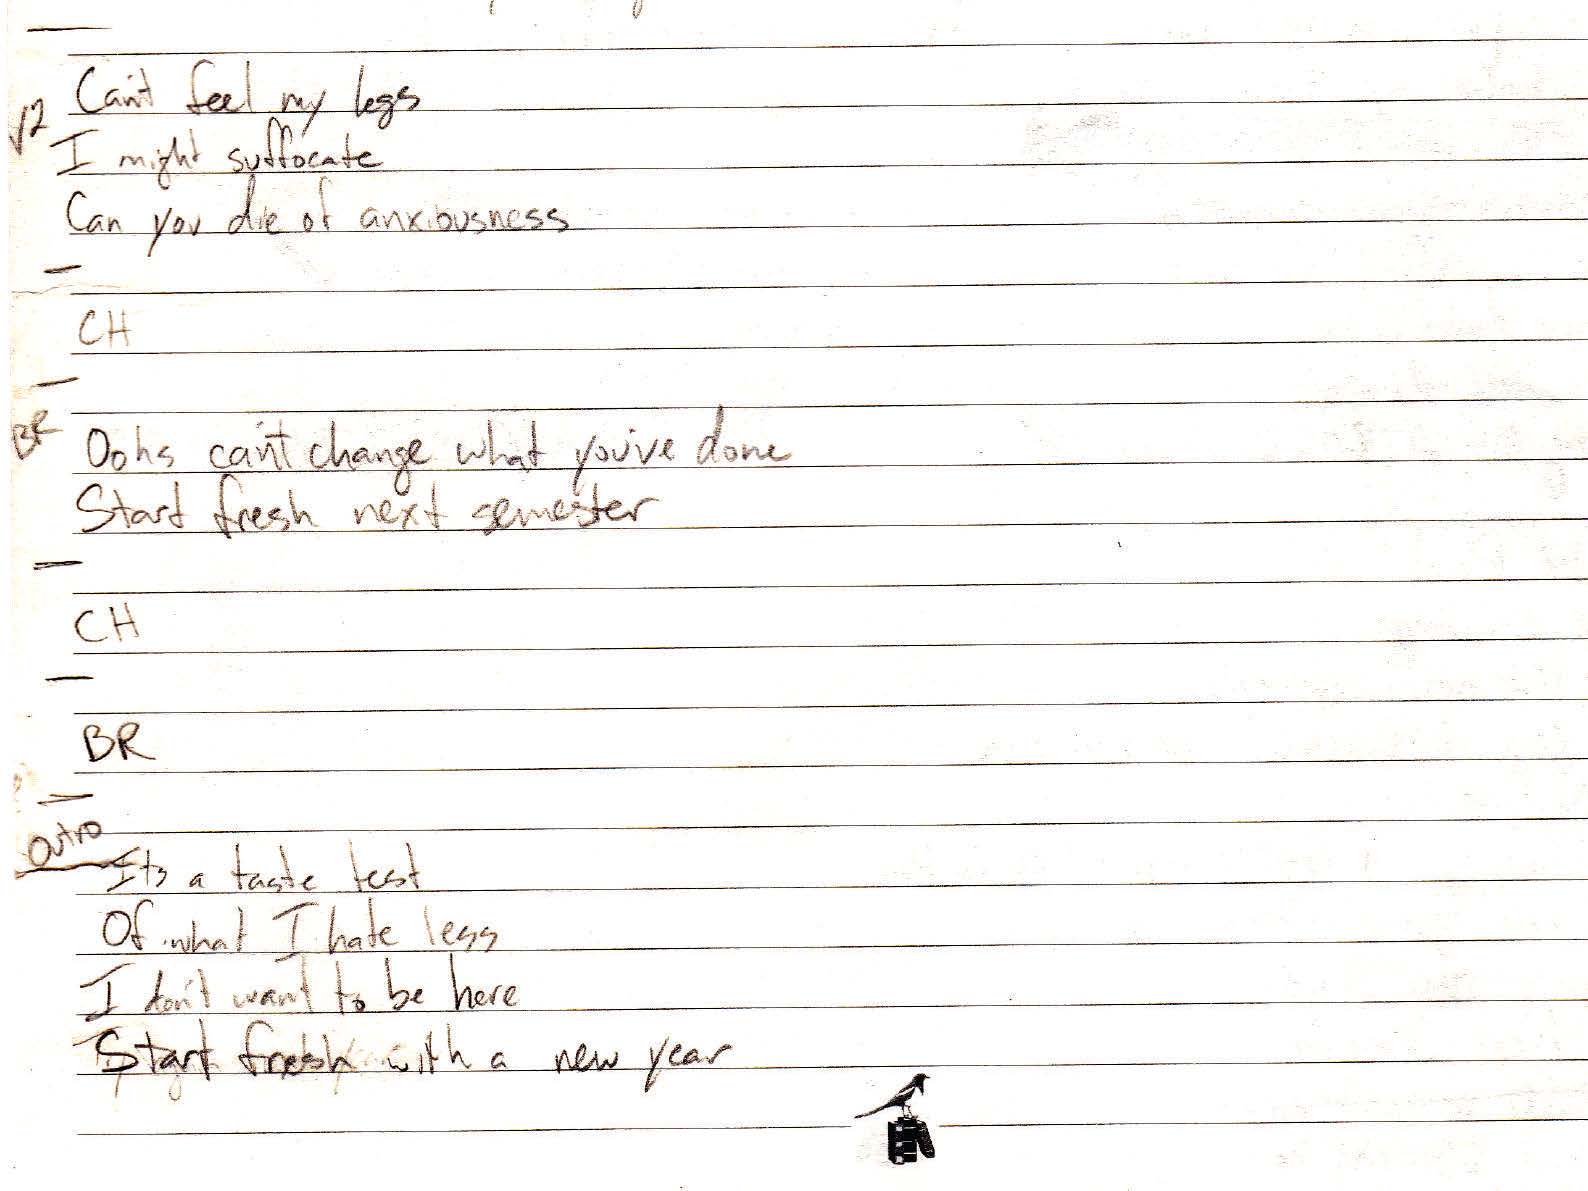 V2
Can't feel my legs
I might suffocate
Can you die of anxiousness
CH
BR
Oohs can't change what you've done
Start fresh next semester
CH
BR
Outro
Its a taste test
Of what I hate less
I don't want to be here
Start fresh with a new year